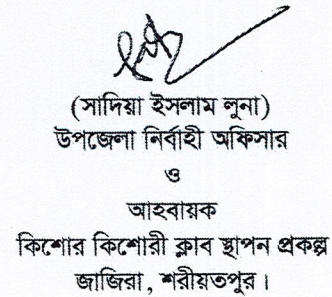 (সাদিয়া ইসলাম লুনা)
উপজেলা নির্বাহী অফিসার
ও
আহবায়ক
কিশোর কিশোরী ক্লাব স্থাপন প্রকল্প
জাজিরা, শরীয়তপুর।